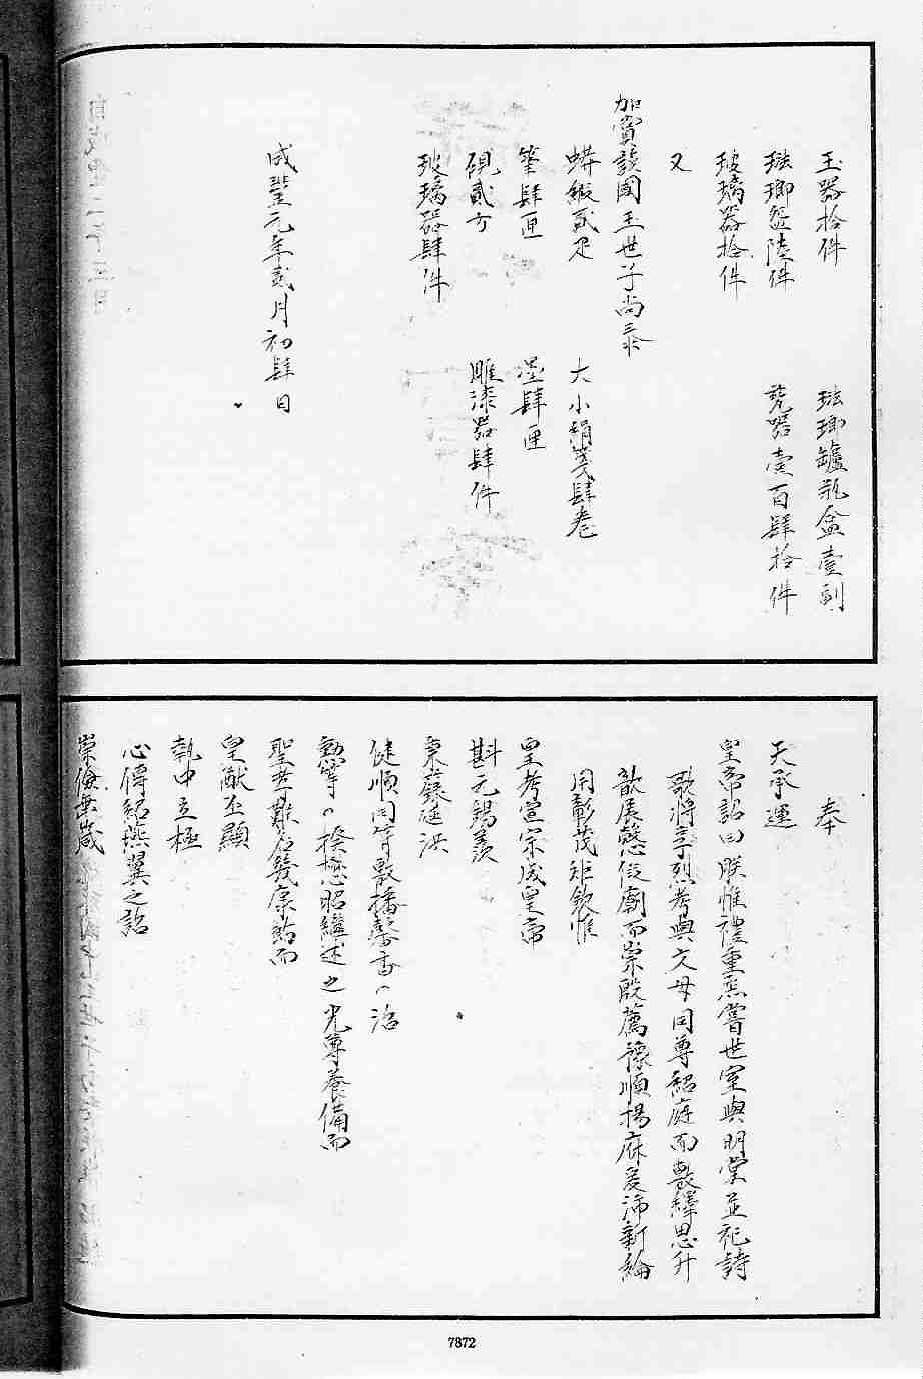 玉器拾件
琺瑯鑪瓶盒壹副
琺瑯盌陸件
甆器壹百肆拾件
玻璃器拾件
又
加賞該國王世子尚泰
蟒緞貳疋
大小絹箋肆卷
筆肆匣
墨肆匣
硯貳方
雕漆器肆件
玻璃器肆件
咸豐元年貳月初肆日
奉
天承運
皇帝詔曰朕惟禮重烝嘗世室與明堂並祀詩
歌將享烈考與文母同尊紹庭而敷繹思升
歆展慤伋廟而崇殷薦豫順揚庥爰沛新綸
用彰茂矩欽惟
皇考宣宗成皇帝
斟元錫羨
秉籙延洪
健順同符敷播馨香之治
勳華之揆懋昭繼述之光尊養備而
聖孝難名幾康勅而
皇猷丕顯
執中立極
心傳紹燕翼之詒
崇儉垂箴
7872